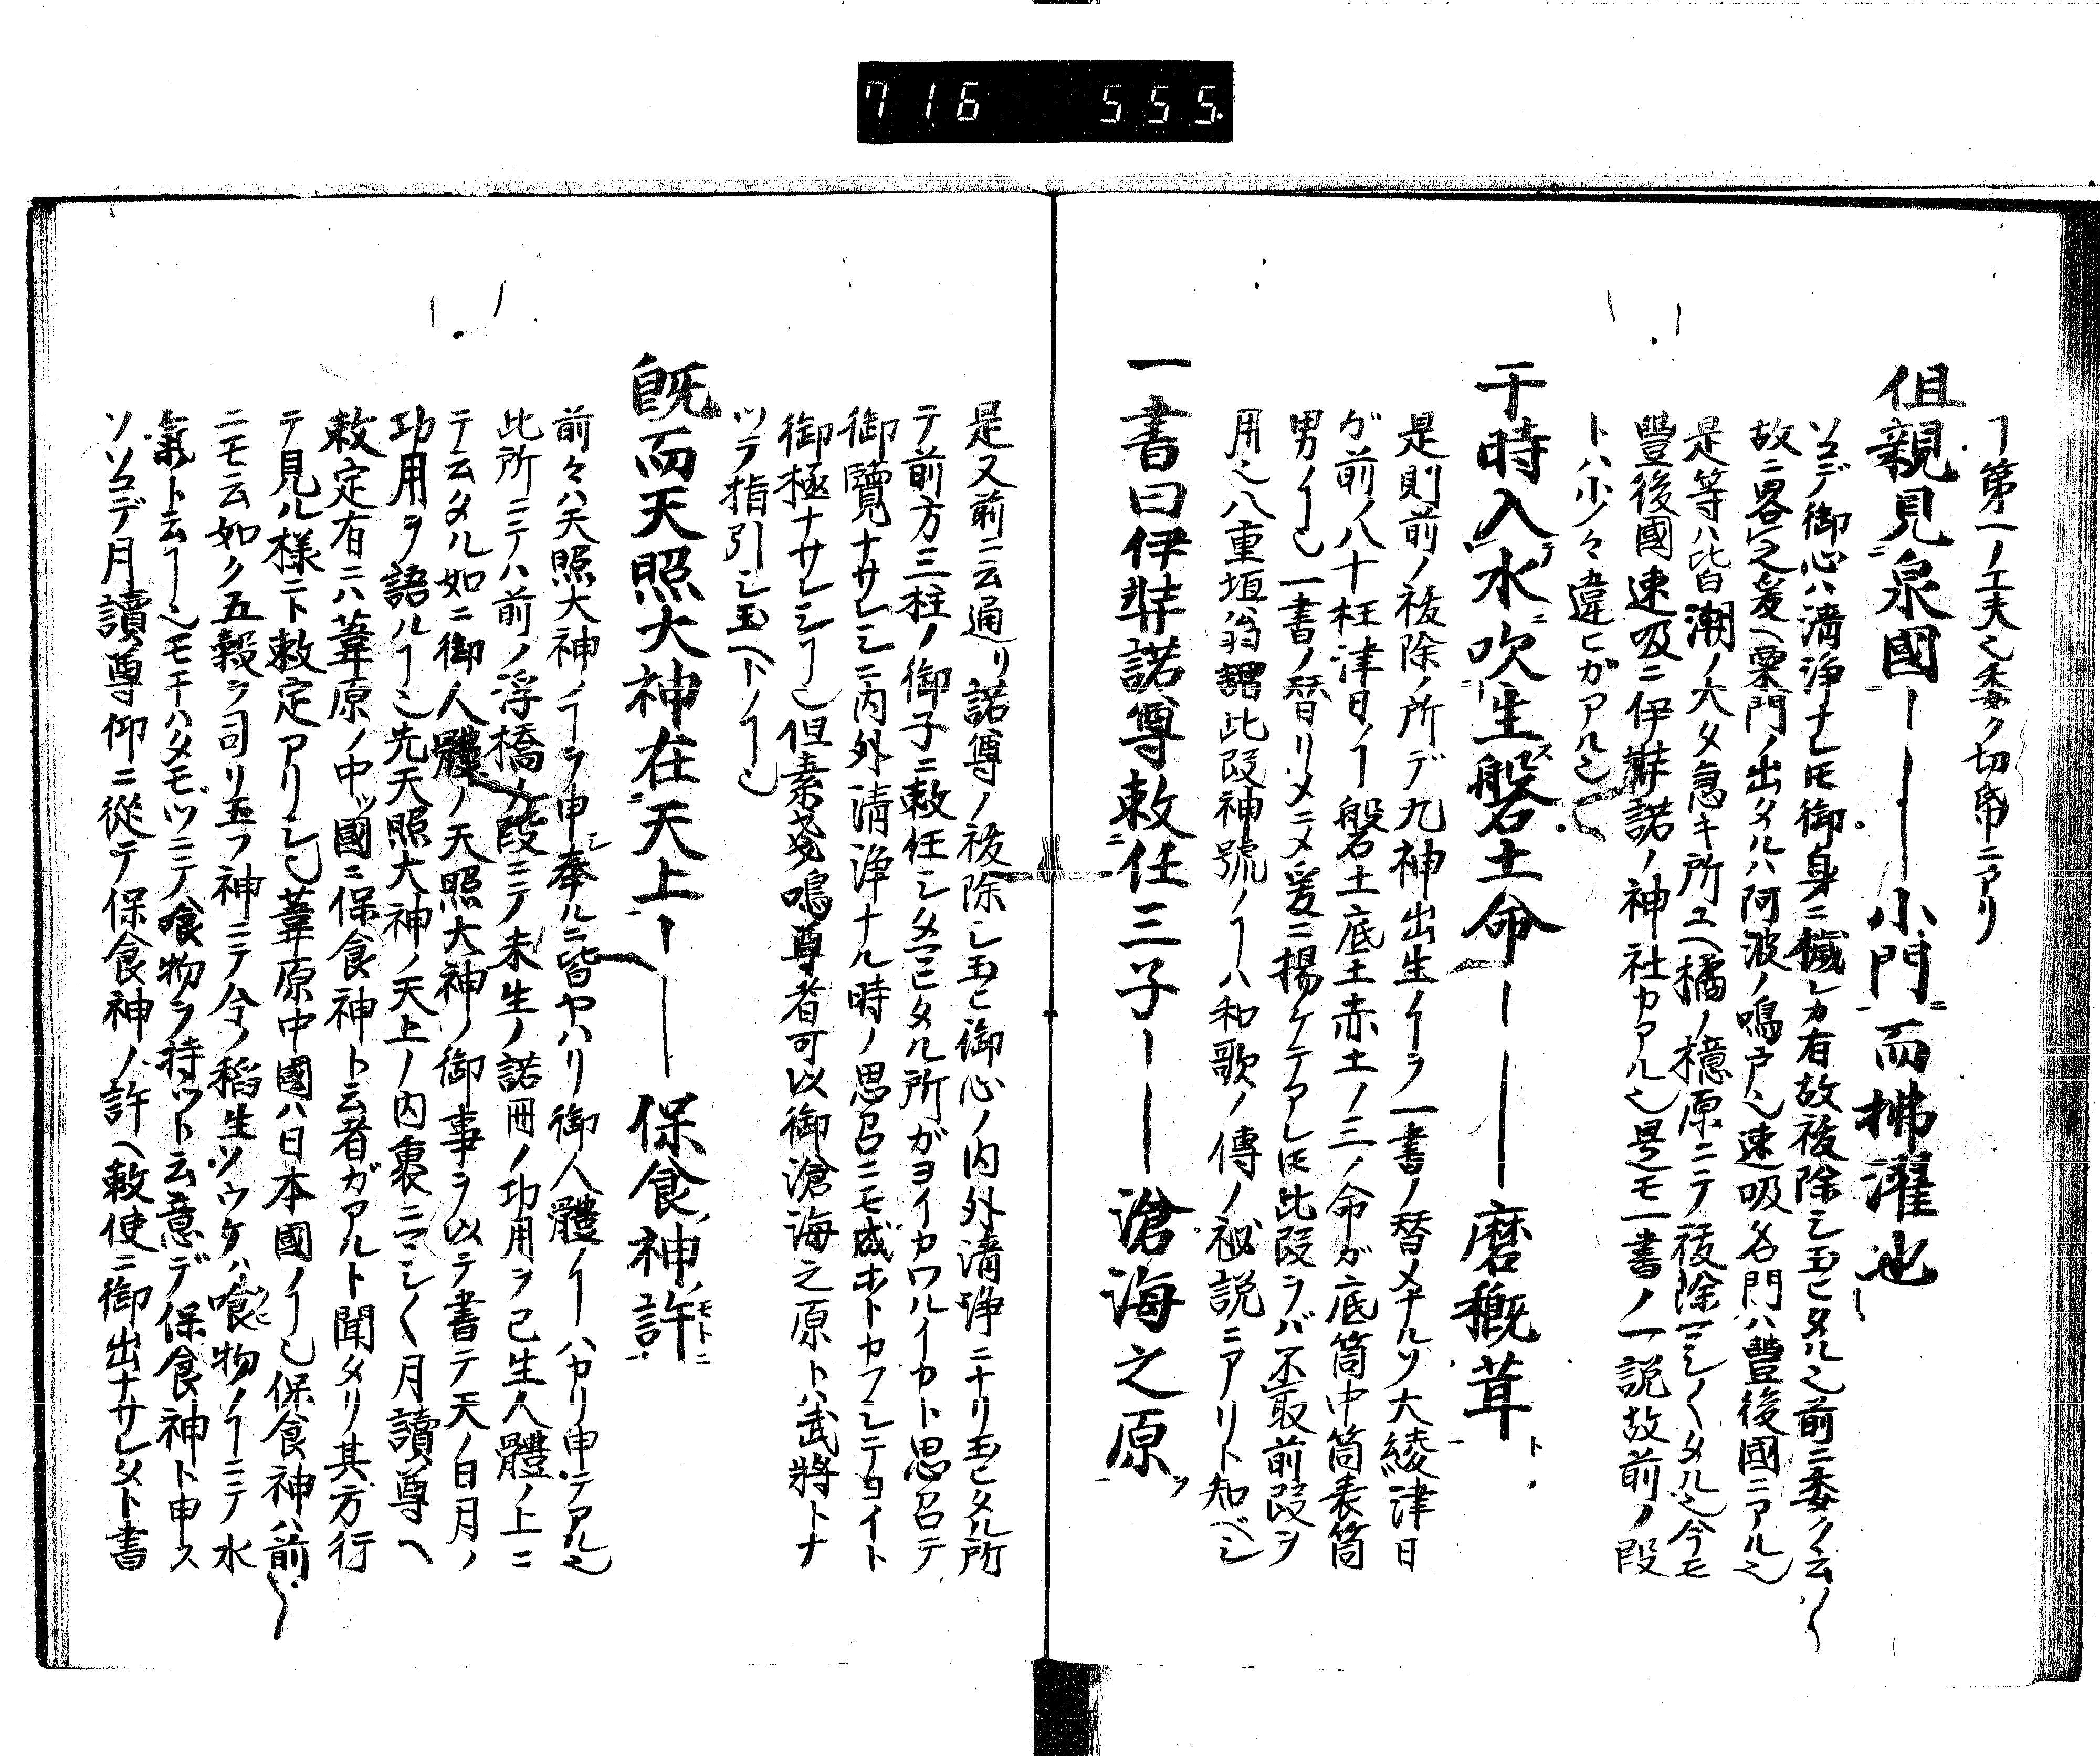 716 555.
ヿ第一ノ工夫也委ク切帋ニアリ
但親見泉國ー ー ー小門而拂濯也
ソコデ御心ハ清浄ナレ𪜈御身ニ穢レカ有故祓除シ玉ヒタル也前ニ委ク云ソ
故ニ畧之爰ヘ粟門ノ出タルハ阿波ノ鳴戸也速吸名門ハ豐後國ニアル也
是等ハ皆潮ノ大タ急キ所ユヘ橘ノ檍原ニテ祓除マシ〱タル也今モ
豐後國速吸ニ伊弉諾ノ神社カアル也是モ一書ノ一説故前ノ段
トハ少々違ヒガアル也
于時入水吹生磐土命ー ー ー磨概茸
是則前ノ祓除ノ所デ九神出生ノヿヲ一書ノ替メナルソ大綾津日
ガ前ノ八十枉津日ノヿ磐土底土赤土ノ三ノ命ガ底筒中筒表筒
男ノヿ也一書ノ替リメニメ爰ニ揚ケテアレ𪜈此段ヲバ不取前段ヲ
用也八重垣翁謂此段神號ノヿハ和歌ノ傳ノ祕説ニアリト知ベシ
一書曰伊弉諾尊敕任三子ー ー ー滄海之原
是又前ニ云通リ諾尊ノ祓除シ玉ヒ御心ノ内外清浄ニナリ玉ヒタル所
テ前方三柱ノ御子ニ敕任シタマヒタル所ガヨイカワルイカト思召テ
御覽ナサレシニ内外清浄ナル時ノ思召ニモ成ホトカフシテヨイト
御極ナサレシヿ也但素戔嗚尊者可以御滄海之原トハ武將トナ
ツテ指引シ玉ヘトノヿ也
既而天照大神在天上ー ー保食神許
前々ハ天照大神ノヿヲ申奉ルニ皆ヤハリ御人體ノヿハカリ申テアル也
此所ニテハ前ノ浮橋ノ段ニテ未生ノ諾冊ノ功用ヲ已生人體ノ上ニ
テ云タル如ニ御人體ノ天照大神ノ御事ヲ以テ書テ天ノ日月ノ
功用ヲ語ルヿ也先天照大神ノ天上ノ内裏ニマシ〱月讀尊ヘ
敕定有ニハ葦原ノ中ツ國ニ保食神ト云者ガアルト聞タリ其方行
テ見ル様ニト敕定アリシ也葦原中國ハ日本國ノヿ也保食神ハ前
ニモ云如ク五穀ヲ司リ玉フ神ニテ今ノ稻生ソウケハ喰物ノヿニテ水
氣ト云ヿ也モチハタモツニテ喰物ヲ持ツト云意デ保食神ト申ス
ソソコデ月讀尊仰ニ從テ保食神ノ許ヘ敕使ニ御出ナサレタト書